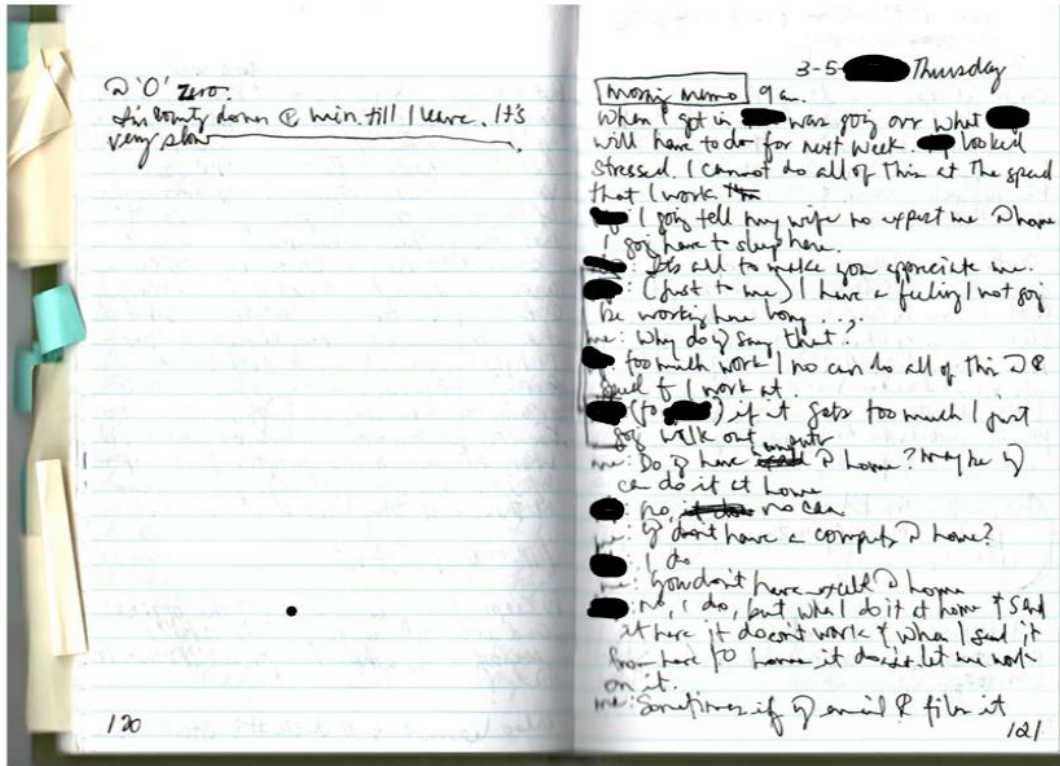 @ 'O' zero.
I'm county down @ min. till I leave. It's
very slow
120
3-5- Thursday
morning memo 9 am.
When I got in was going over what
will have to do for next week. looked
stressed. I cannot do all of this at the speed
that I work
I going tell my wife no expect me @ home
I going have to sleep here.
: It's all to make you appreciate me.
: (Just to me) I have a feeling I not going
be working here long...
me: Why do say that?
: too much work I no can do all of this @
speed I work at.
(to ) if it gets too much I just
going walk out
me: Do have @ home? maybe
can do it at home
: no, no can
me: don't have a computer @ home?
I do
me: You don't have excell @ home
: no, I do, but when I do it at home & send
it here it doesn't work & when I send it
from here to home it doesn't let me work
on it.
me: Sometimes if email file it
121